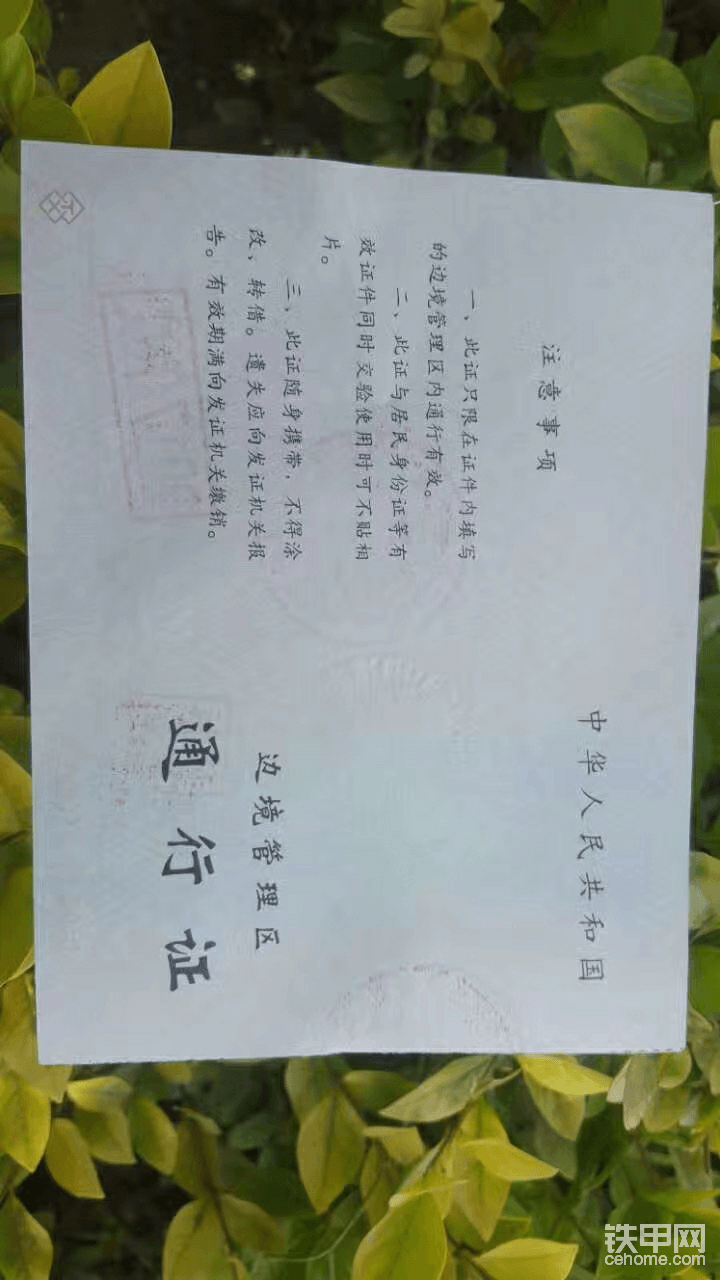 注意事项
一、此证只限在证件内填写
的边境管理区内通行有效。
二、此证与居民身份证等有
效证件同时交验使用时可不贴相
片。
三、此证随身携带，不得涂
改、转借。遗失应向发证机关报
告。有效期满向发证机关缴销。
中华人民共和国
边境管理区
通行证
铁甲网
cehome.com